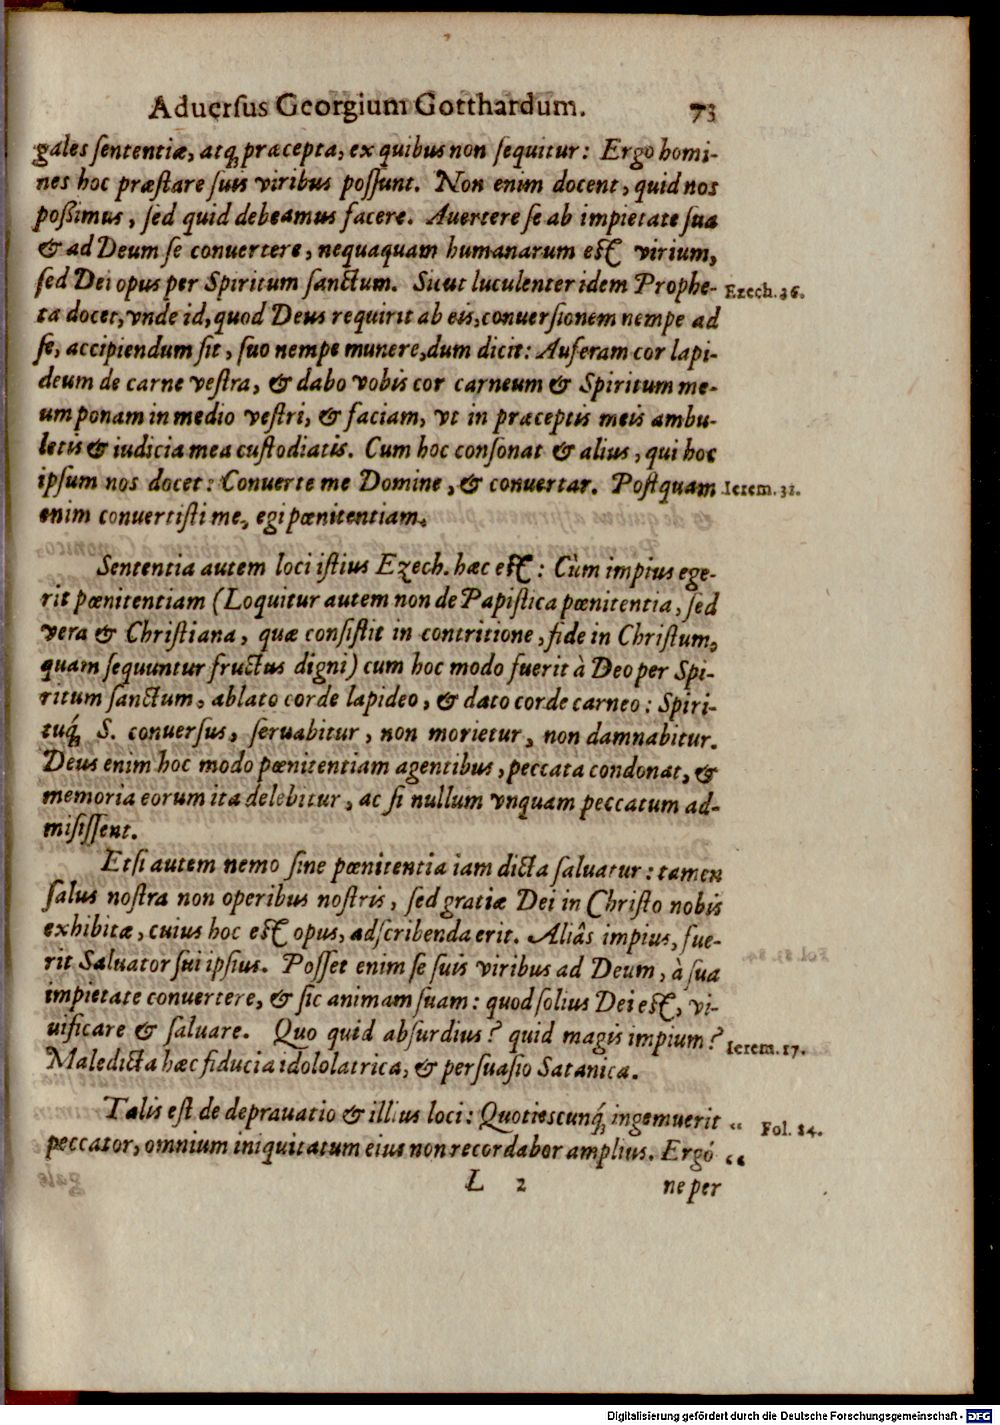 Aduersus Georgium Gotthardum. 73
gales sententiæ, atq́ præcepta, ex quibus non sequitur: Ergo homi-
nes hoc præstare suis viribus possunt. Non enim docent, quid nos
poßimus, sed quid debeamus facere. Auertere se ab impietate sua
& ad Deum se conuertere, nequaquam humanarum est virium,
sed Dei opus per Spiritum sanctum. Sicut luculenter idem Prophe- Ezech. 36.
ta docet, vnde id, quod Deus requirit ab eis, conuersionem nempe ad
se, accipiendum sit, suo nempe munere, dum dicit: Auferam cor lapi-
deum de carne vestra, & dabo vobis cor carneum & Spiritum me-
um ponam in medio vestri, & faciam, vt in præceptis meis ambu-
letis & iudicia mea custodiatis. Cum hoc consonat & alius, qui hoc
ipsum nos docet: Conuerte me Domine, & conuertar. Postquam Ierem. 31.
enim conuertisti me, egi pœnitentiam.
Sententia autem loci istius Ezech. hæc est: Cùm impius ege-
rit pœnitentiam (Loquitur autem non de Papistica pœnitentia, sed
vera & Christiana, quæ consistit in contritione, fide in Christum,
quam sequuntur fructus digni) cum hoc modo fuerit à Deo per Spi-
ritum sanctum, ablato corde lapideo, & dato corde carneo: Spiri-
tuq́ S. conuersus, seruabitur, non morietur, non damnabitur.
Deus enim hoc modo pœnitentiam agentibus, peccata condonat, &
memoria eorum ita delebitur, ac si nullum vnquam peccatum ad-
misissent.
Etsi autem nemo sine pœnitentia iam dicta saluatur: tamen
salus nostra non operibus nostris, sed gratiæ Dei in Christo nobis
exhibitæ, cuius hoc est opus, adscribenda erit. Aliâs impius, fue-
rit Saluator sui ipsius. Posset enim se suis viribus ad Deum, à sua
impietate conuertere, & sic animam suam: quod solius Dei est, vi-
uificare & saluare. Quo quid absurdius? quid magis impium?
Maledicta hæc fiducia idololatrica, & persuasio Satanica. Ierem. 17.
Talis est de deprauatio & illius loci: Quotiescunq́ ingemuerit „ Fol. 84.
peccator, omnium iniquitatum eius non recordabor amplius. Ergò „
L 2 ne per
Digitalisierung gefördert durch die Deutsche Forschungsgemeinschaft - DFG